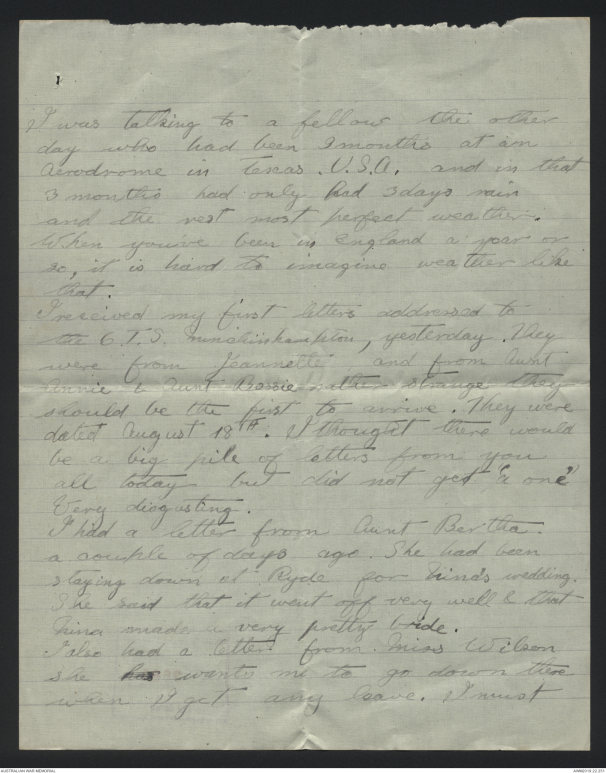 I was talking to a fellow the other
day who had been 3 months at an
Aerodrome in Texas. U.S.A. and in that
3 months had only had 3 days rain
and the rest most perfect weather.
When you've been in England a year or
so, it is hard to imagine weather like
that.
I received my first letters addressed to
the 6.T.S. Minchinhampton, yesterday. They
were from Jeannette and from Aunt
Annie & Aunt Bessie rather strange they
should be the first to arrive. They were
dated August 18th. I thought there would
be a big pile of letters from you
all today but did not get "a one"
Very disgusting.
I had a letter from Aunt Bertha
a couple of days ago. She had been
staying down at Ryde for Nina's wedding.
She said that it went off very well & that
Nina made a very pretty bride.
I also had a letter from Miss Wilson
she has wants me to go down there
when I get any leave. I must
AUSTRALIAN WAR MEMORIAL